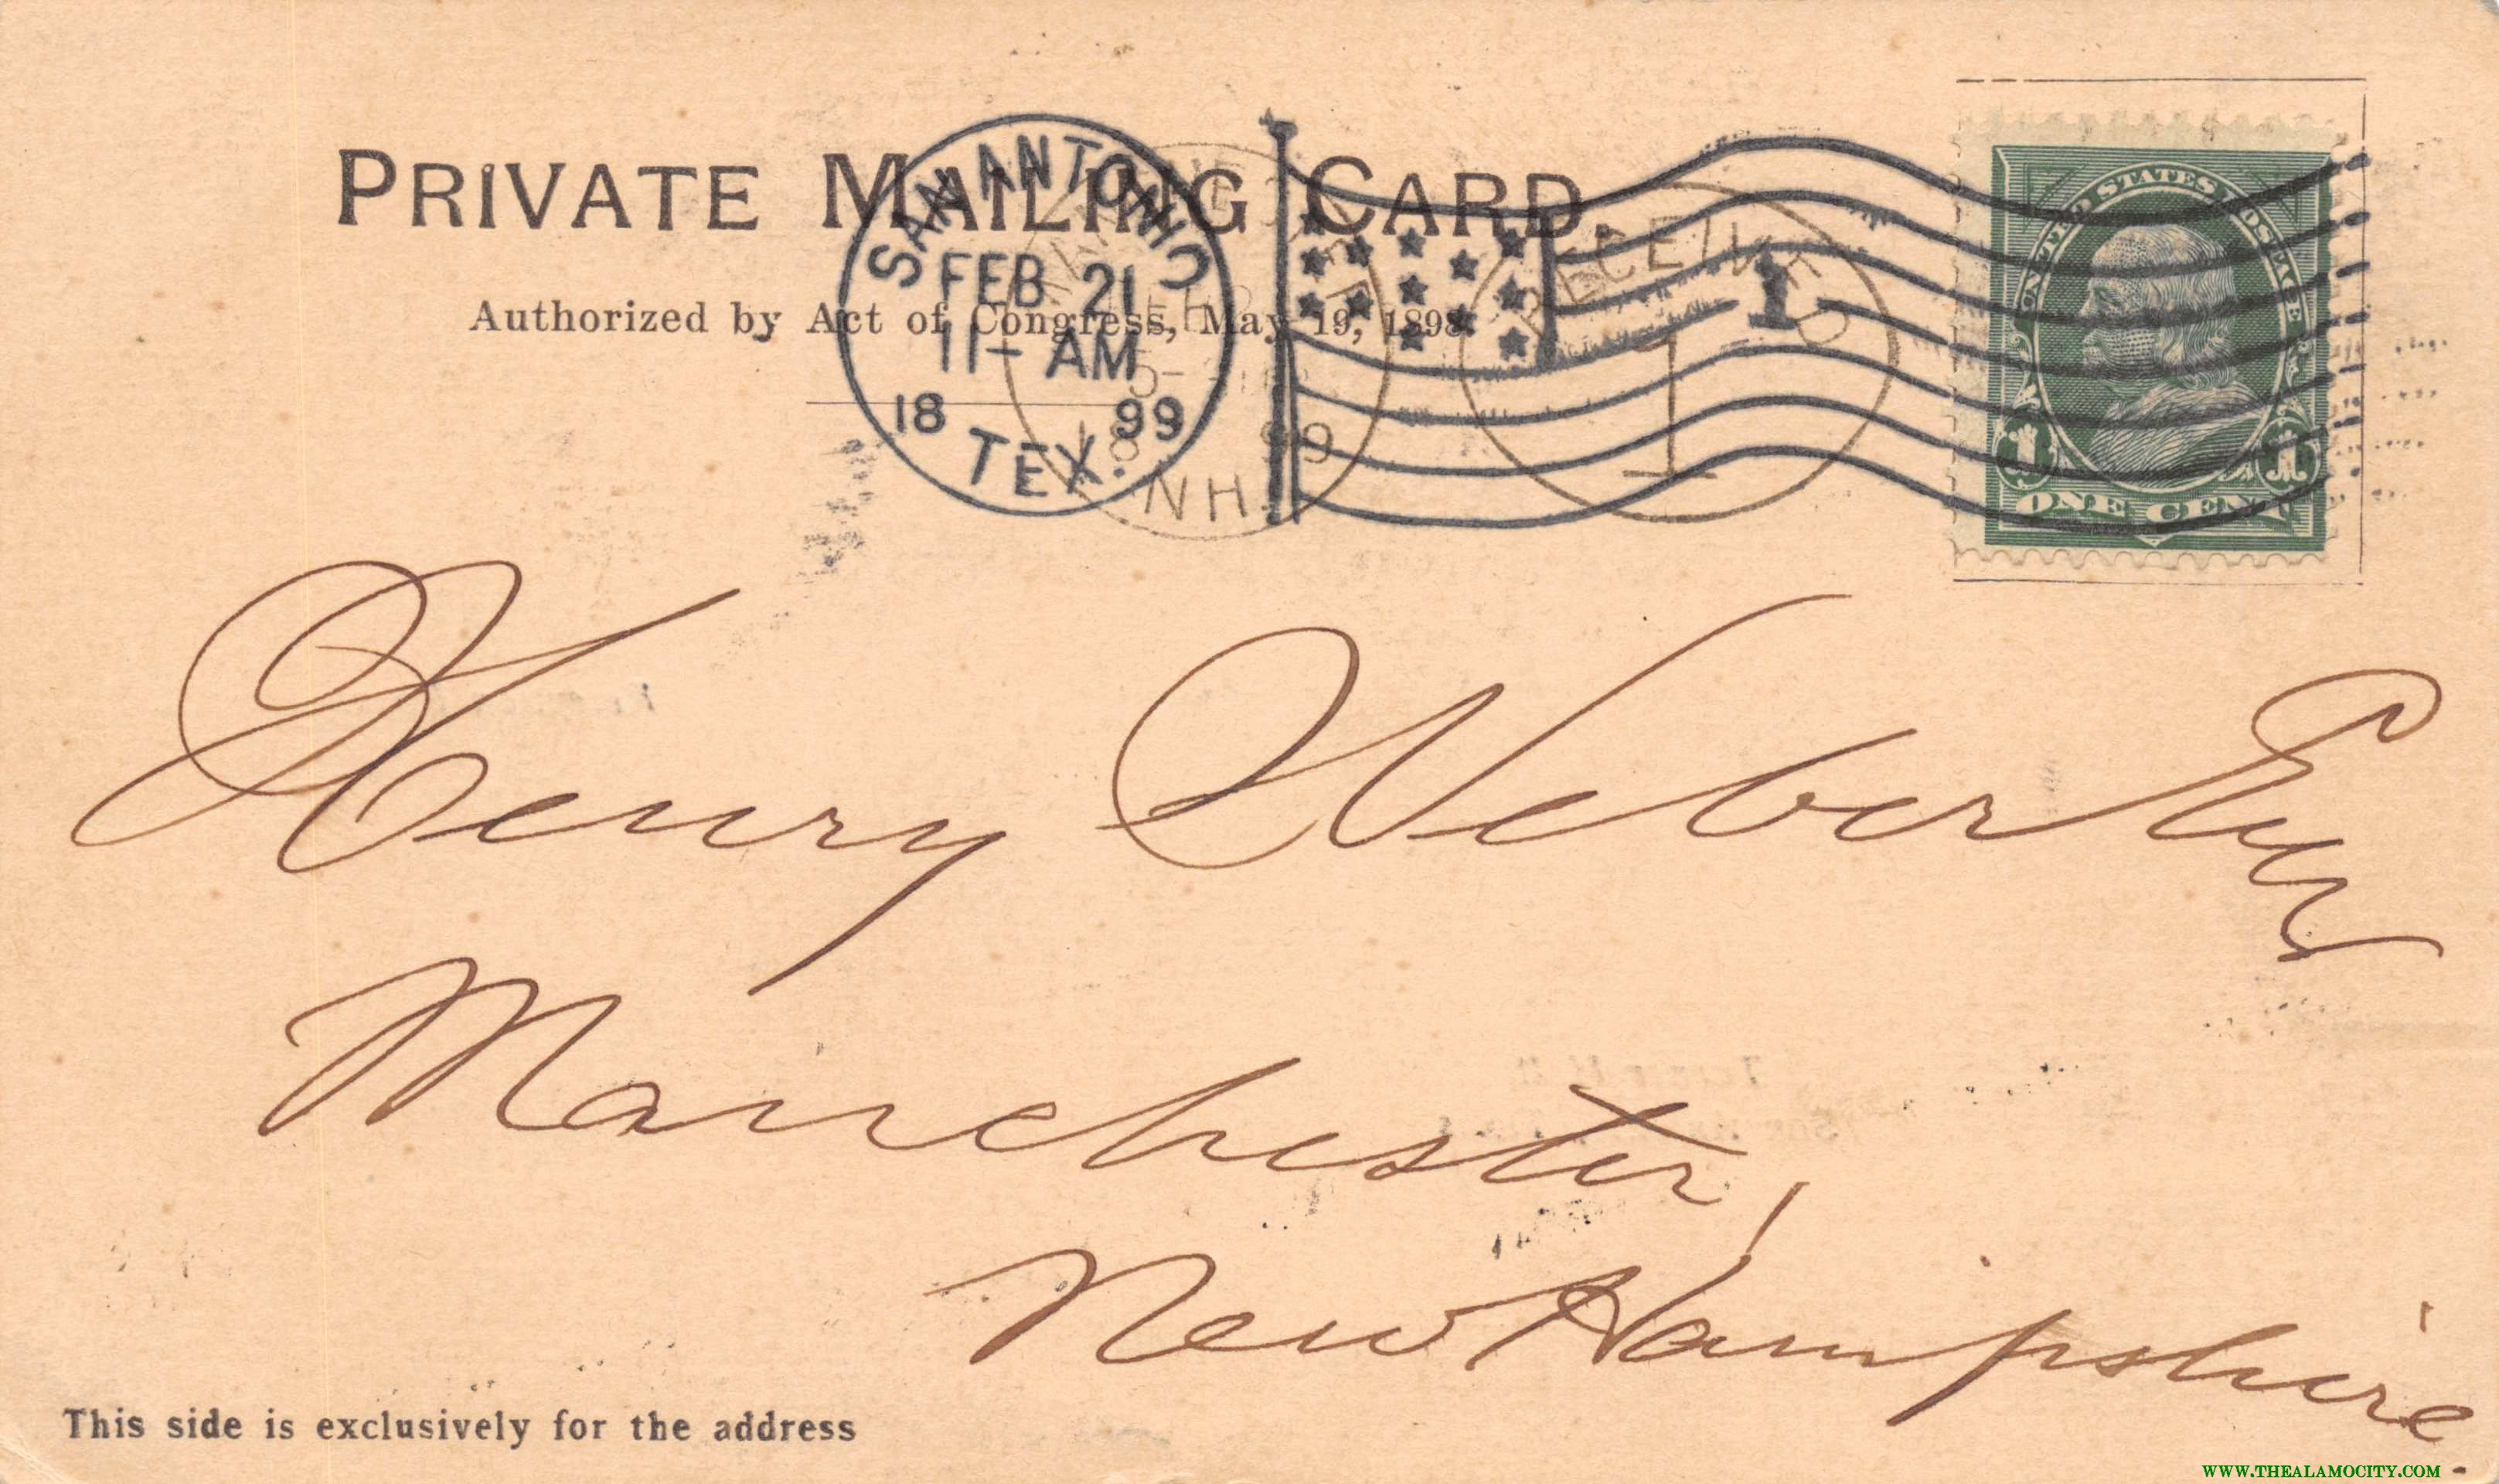 PRIVATE MAILING CARD
Authorized by Act of Congress, May 19, 1898.
SAN ANTONIO
FEB 21
11- AM
18 99
TEX.
NH.
RECEIVED
1
1
UNITED STATES POSTAGE
1 1
ONE CENT
Henry Weber
Manchester,
New Hampshire.
This side is exclusively for the address
WWW.THEALAMOCITY.COM